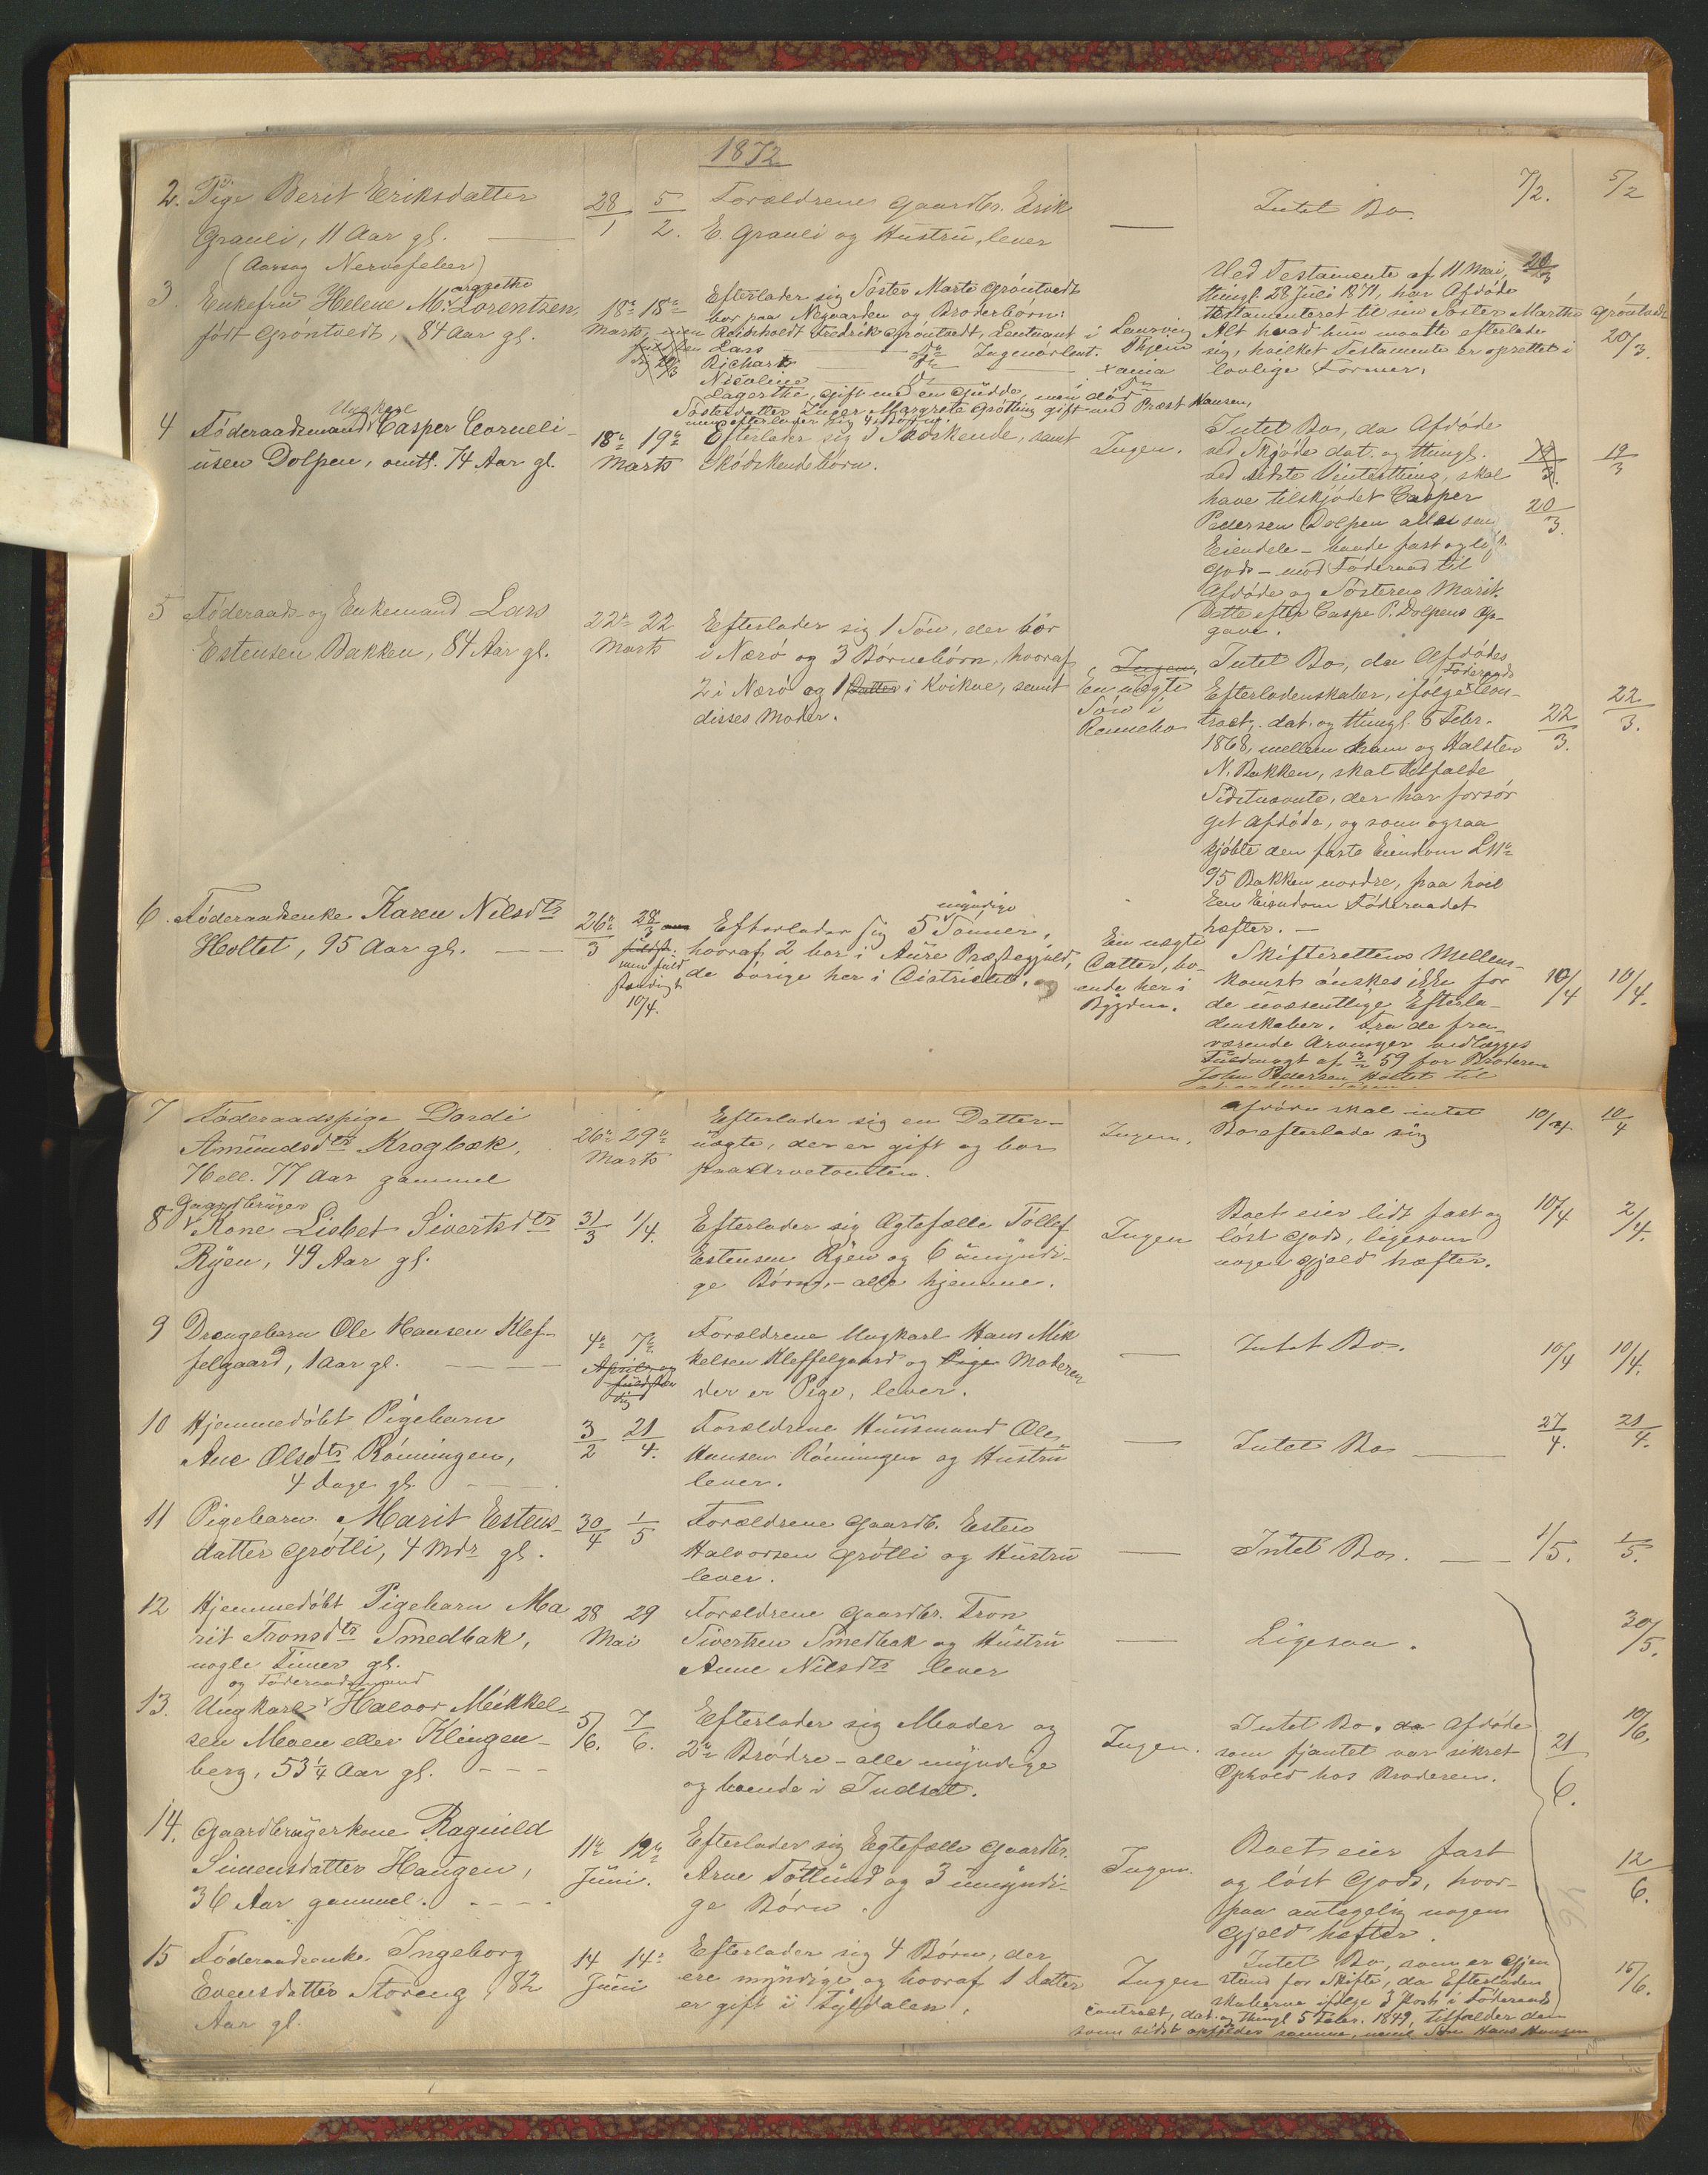 1872
2. Pige Berit Eriksdatter
Grauli, 11 Aar gl.
(Aarsag Nervefeber)
28/1 5/2.
Forældrene Gaardbr. Erik
E. Grauli og Hustru, lever
—
Intet Bo.
7/2. 5/2
3. Enkefru Helene Margrethe Lorentzen,
født Grøntvedt, 84 Aar gl.
18de 18de
Marts
Efterlader sig Søster Marte Grøntvedt
bor paa Nygaarden og Broderbørn:
Reinholdt Fredrik Grøntvedt, Lieutnant i Laurvig
Lars — do Ingeniørleut. Thjem
Richart — do — Xania
Nicoline do i do
Lagerthe, gift med en Gudde, men død
Søsterdatter Inger Margrete Grøtting gift med Præst Hansen,
men efterlader sig 4 Børn.
Ved Testamente af 11 Mai,
thingl. 28 Juli 1871, har Afdøde
testamenteret til sin Søster Marthe Grøntvedt
Alt hvad hun maatte efterlade
sig, hvilket Testamente er oprettet i
lovlige Former.
20/3
20/3.
4 Føderaadsmand Ungkarl Casper Corneli-
usen Dolpen, omtl. 74 Aar gl.
18de 19de
Marts
Efterlader sig Søskende, samt
Skødskendebørn.
Ingen.
Intet Bo, da Afdøde
ved Skjøde dat. og thingl.
ved sidste Vinterthing, skal
have tilskjødet Casper
Pedersen Dolpen alle sin
Eiendele — baade fast og løst
Gods — mod Føderaad til
Afdøde og Søsteren Marit.
(Dette efter Casper P. Dolpens Op-
gave.
19/3.
20/3.
19/3
5 Føderaads- og Enkemand Lars
Estensen Bakken, 84 Aar gl.
22de 22
Marts
Efterlader sig 1 Søn, der bor
i Nærø og 3 Børnebørn, hvoraf
2 i Nærø og 1 Datter i Kvikne, samt
disses Moder.
Ingen,
En uægte
Søn i
Rennebo
Intet Bo, da Afdødes
Efterladenskaber, ifølge Føderaads Con-
tract, dat. og thingl. 5 Febr.
1868, mellem ham og Halsten
N. Bakken, skal tilfalde
Sidstnævnte, der har forsør
get Afdøde, og som ogsaa
kjøbte den faste Eiendom LNo
95 Bakken nordre, paa hvil
ken Eiendom Føderaadet
hæfter. —
22/3.
22/3.
6. Føderaadsenke Karen Nilsdtr
Holtet, 95 Aar gl. — —
26de/3 28/3
fuldst.
men fuld
stændigt
10/4.
Efterlader sig 5 myndige Sønner,
hvoraf 2 bor i Aure Præstegjeld,
de øvrige her i Distriktet. og
En uægte
Datter, bo-
ende her i
Bygden.
Skifterettens Mellem-
komst ønskes ikke for
de uvæsentlige Efterla-
denskaber. Fra de fra-
værende Arvinger vedlægges
Fuldmagt af 3/2 59 for Broderen
John Pedersen Holtet til
10/4 10/4.
7 Føderaadspige Dordi
Amundsdtr Krogbæk,
Hell. 77 Aar gammel
26de 29de
Marts
Efterlader sig en Datter-
uægte, der er gift og bor
paa Arvetomten.
Ingen.
Afdøde skal intet
Bo efterlade sig
10/4 10/4
8 Gaardbruger Kone Lisbet Sivertsdtr
Ryen, 49 Aar gl.
31/3 1/4.
Efterlader sig Ægtefælle Tollef
Estensen Ryen og 6 umyndi-
ge Børn, — alle hjemme.
Ingen
Boet eier lidt fast og
løst Gods, ligesom
nogen Gjeld hæfter.
10/4 2/4.
9 Drengebarn Ole Hansen Klef-
felgaard, 1 Aar gl. — — —
4de 7de
April og
fuldstæn
dig
Forældrene Ungkarl Hans Mik
kelsen Kleffelgaard og Pige Moderen
der er Pige, lever.
—
Intet Bo.
10/4 10/4.
10 Hjemmedøbt Pigebarn
Ane Olsdtr Rønningen,
4 Dage gl. — — —
3/2 21/4.
Forældrene Huusmand Ole
Hansen Rønningen og Hustru
lever.
—
Intet Bo —
27/4. 21/4.
11 Pigebarn Marit Estens-
datter Grøtli, 4 Mdr gl.
30/4 1/5
Forældrene Gaardb. Esten
Halvorsen Grøtli og Hustru
lever.
—
Intet Bo. — —
1/5. 1/5.
12 Hjemmedøbt Pigebarn Ma
rit Tronsdtr Smedbak,
nogle Timer gl.
28 29
Mai
Forældrene Gaardbr. Tron
Sivertsen Smedbak og Hustru
Anne Nilsdtr lever
—
Ligesaa.
30/5.
13. Ungkarl og Føderaadsmand Halvor Mikkel-
sen Moen eller Klingen-
berg, 53¼ Aar gl. — — —
5/6. 7/6.
Efterlader sig Moder og
2de Brødre — alle myndige
og boende i Indset.
Ingen.
Intet Bo, da Afdøde
som fjantet var sikret
Ophold hos Broderen.
21/6.
10/6.
14. Gaardbrugerkone Ragnild
Simensdatter Haugen,
36 Aar gammel. — — —
11de 12de
Juni.
Efterlader sig Egtefælle Gaardbr.
Arne Føttund og 3 umyndi-
ge Børn.
Ingen.
Boet eier fast
og løst Gods, hvor-
paa antagelig nogen
Gjeld hæfter.
12/6.
15 Føderaadsenke Ingeborg
Evensdatter Storeng 82
Aar gl.
14 14de
Juni
Efterlader sig 4 Børn, der
ere myndige og hvoraf 1 Datter
er gift i Tyldalen.
Ingen
Intet Bo, som er Gjen
stand for Skifte, da Efterladen
skaberne ifølge 3 Post i Føderaads
contract, dat. og thingl 5 Febr. 1849, tilfalder den
som sidst opfølder samme, nemlig Søn Hans Hansen
15/6.